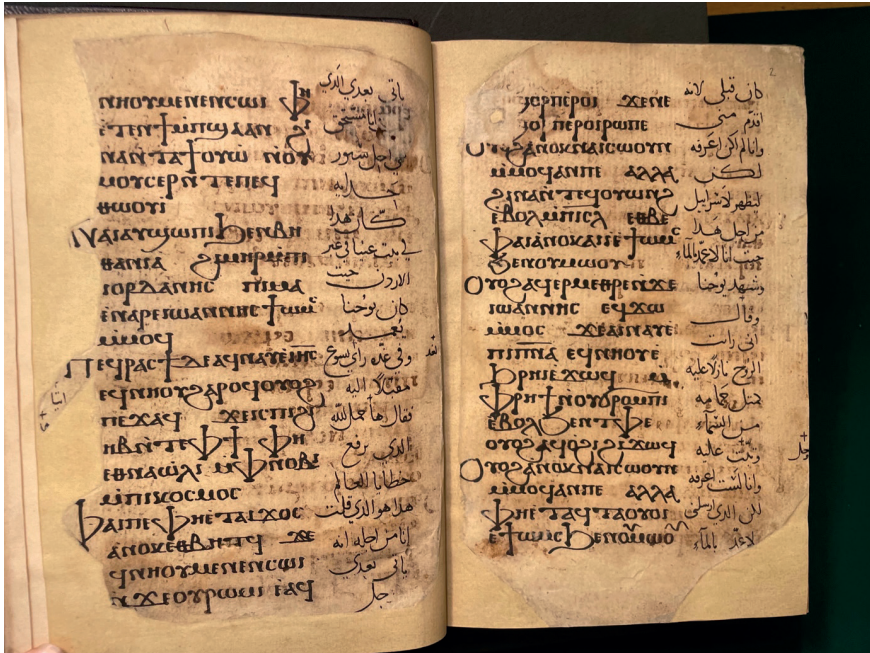 ⲛⲏⲟⲩⲙⲉⲛⲉⲛⲥⲱⲓ ⲫⲏ
ⲉ̀ⲧⲉⲛϯⲙ̀ⲡϣⲁⲁⲛ ϩⲓ
ⲛⲁⲛ̀ⲧⲁϯⲟⲩⲱ ⲛ̀ⲟⲩ
ⲙⲟⲩⲥⲉⲣⲛ̀ⲧⲉⲡⲉϥ
ⲑⲱⲟⲩⲓ
ⲛⲁⲓⲁⲩϣⲱⲡⲓϧⲉⲛⲃⲏ
ⲑⲁⲛⲓⲁ ϩⲓⲙⲏⲣⲙ̀ⲡⲓ
ⲓⲟⲣⲇⲁⲛⲏⲥ ⲡⲓⲙⲁ
ⲉ̀ⲛⲁⲣⲉⲓⲱⲁⲛⲛⲏⲥϯⲱⲙⲥ
ⲙ̀ⲙⲟϥ
ⲡⲉϥⲣⲁⲥϯⲇⲉⲁϥⲛⲁⲩⲉⲓⲏ̅ⲥ̅
ⲉϥⲛⲏⲟⲩϩⲁⲣⲟϥⲟⲩⲟϩ
ⲡⲉϫⲁϥ ϫⲉⲓⲥⲡⲓϩⲓ
ⲏⲃⲛ̀ⲧⲉⲫϯ ⲫⲏ
ⲉⲑⲛⲁⲱⲗⲓ ⲙ̀ⲫⲛⲟⲃⲓ
ⲙ̀ⲡⲓⲕⲟⲥⲙⲟⲥ
ⲫⲁⲓⲡⲉⲫⲏⲉⲧⲁⲓϫⲟⲥ
ⲁ̀ⲛⲟⲕⲉⲑⲃⲏⲧϥ ϫⲉ
ϥⲛⲏⲟⲩⲙⲉⲛⲉⲛⲥⲱⲓ
ⲛ̀ϫⲉⲟⲩⲣⲱⲙⲓ ⲉⲁϥ
ياتى بعدي الذي
انا مستحق
من اجل سيور
حذايه
كان هذا
في بيت عنيا في عبر
الاردن حيث
كان يوحنا
يعمد
وفي غده راى يسوع
مقبلا اليه
فقال هذا حمل الله
الذي يرفع
خطايا العالم
هذا هو الذي قلت
انا من اجله انه
ياتى بعدي
رجل
2
ϣⲟⲣⲡⲉⲣⲟⲓ ϫⲉⲛⲉ
ϣⲟⲣⲡⲉⲣⲟⲓⲣⲱⲡⲉ
ⲟⲩⲟϩⲁⲛⲟⲕⲛⲁⲓⲥⲱⲟⲩⲛ
ⲙ̀ⲙⲟϥⲁⲛⲡⲉ ⲁⲗⲗⲁ
ϩⲓⲛⲁⲛ̀ⲧⲉϥⲟⲩⲱⲛϩ
ⲉⲃⲟⲗⲙ̀ⲡⲓⲥⲗ ⲉⲑⲃⲉ
ⲫⲁⲓⲁⲛⲟⲕⲁⲓⲓⲉϯⲱⲙⲥ
ϧⲉⲛⲟⲩⲙⲱⲟⲩ
ⲟⲩⲟϩⲁϥⲉⲣⲙⲉⲑⲣⲉⲛϫⲉ
ⲓⲱⲁⲛⲛⲏⲥ ⲉϥϫⲱ
ⲙ̀ⲙⲟⲥ ϫⲉⲁⲓⲛⲁⲩⲉ
ⲡⲓⲡ̅ⲛ̅ⲁ̅ ⲉϥⲛⲏⲟⲩⲉ
ϧⲣⲏⲓⲉϫⲱϥ ⲙ̀
ⲫⲣⲏϯⲛ̀ⲟⲩϭⲣⲟⲙⲡⲓ
ⲉ̀ⲃⲟⲗϧⲉⲛⲧⲫⲉ
ⲟⲩⲟϩⲁϥⲟϩⲓϩⲓϫⲱϥ
ⲟⲩⲟϩⲁⲛⲟⲕⲛⲁⲓⲥⲱⲟⲩⲛ
ⲙ̀ⲙⲟϥⲁⲛⲡⲉ ⲁⲗⲗⲁ
ⲫⲏⲉⲧⲁϥⲧⲁⲟⲩⲟⲓ
ⲉ̀ϯⲱⲙⲥϧⲉⲛⲟⲩⲙⲱⲟⲩ
كان قبلى لانه
اقدم منى
وانا لم اكن اعرفه
لكن
ليظهر لاسراييل
من اجل هذا
جيت انا لاعمد بالماء
وشهد يوحنا
وقال
انى رايت
الروح نازلا عليه
مثل حمامه
من السماء
وثبت عليه
وانا لست اعرفه
لكن الذي ارسلنى
لاعمد بالماء